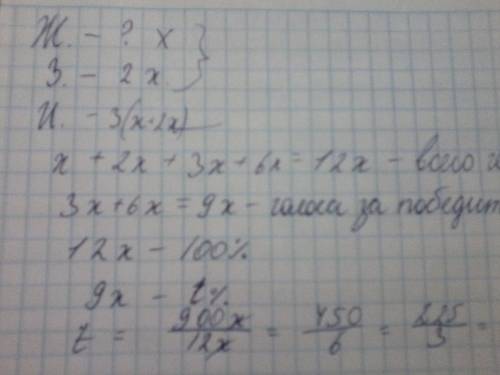 Ж. - ? x
З. - 2x
И. - 3(x+2x)
x + 2x + 3x + 6x = 12x - всего
3x + 6x = 9x - голоса за победит
12x - 100%
9x - t%
t = 900x/12x = 450/6 = 225/3 =